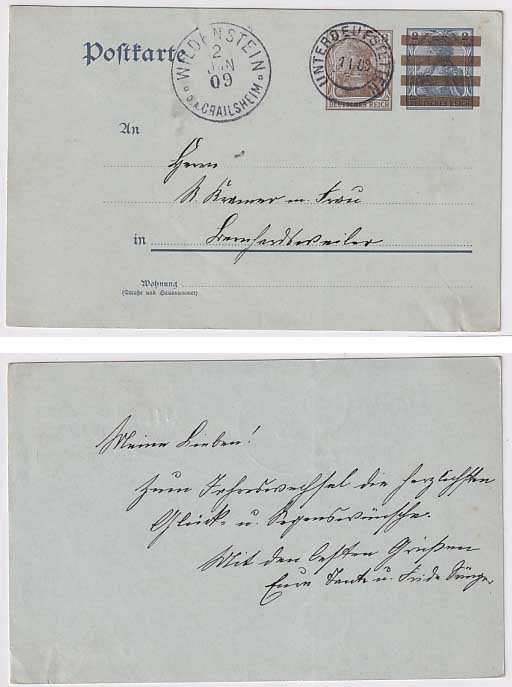 Postkarte
WILDENSTEIN
2
JAN
09
O.A. CRAILSHEIM
UNTERDEUFSTETTEN
1 1 09
DEUTSCHES REICH
2 2
DEUTSCHES REICH
An
Herrn
Kramer m. Frau
in Bernhardsweiler
Wohnung
(Straße und Hausnummer)
Meine Lieben!
Zum Jahreswechsel die herzlichsten
Glück- u. Segenswünsche.
Mit den besten Grüßen
Eure Tante u. Frida